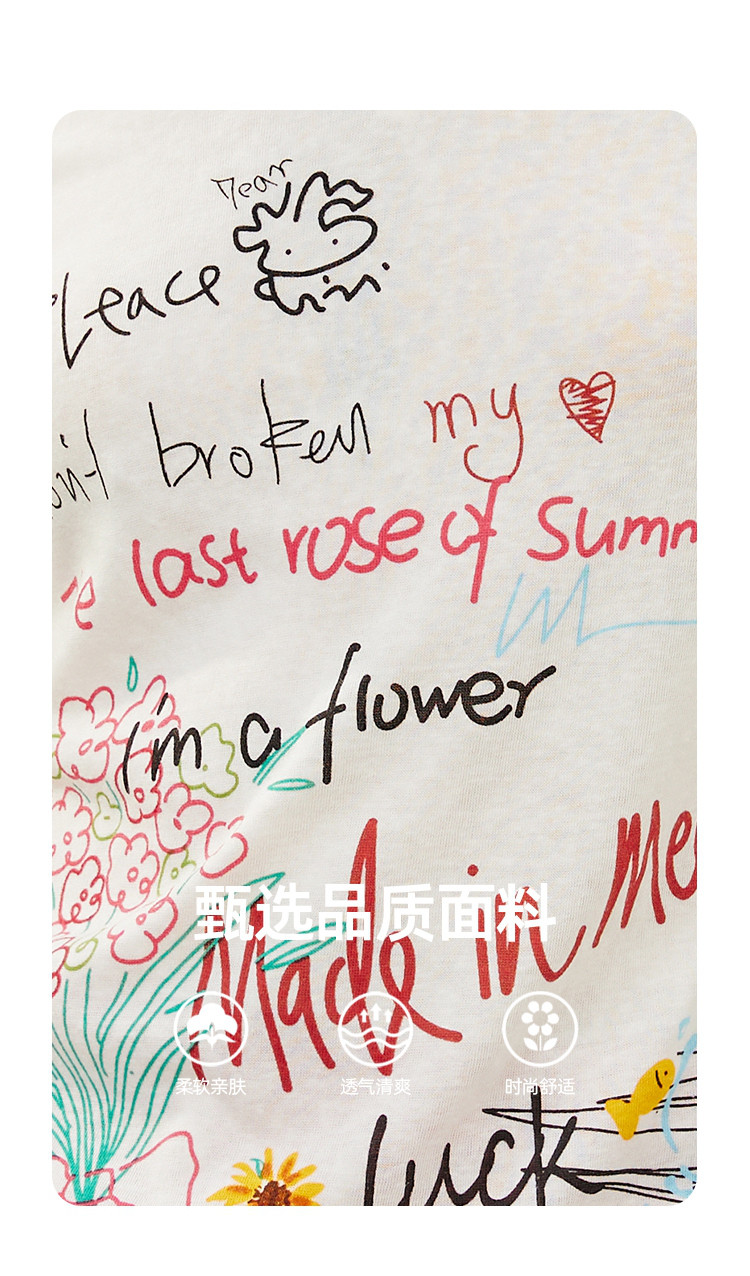 Dear
Peace
broken my
last rose of Summ
i'm a flower
Made in me
甄选品质面料
柔软亲肤 透气清爽 时尚舒适
luck